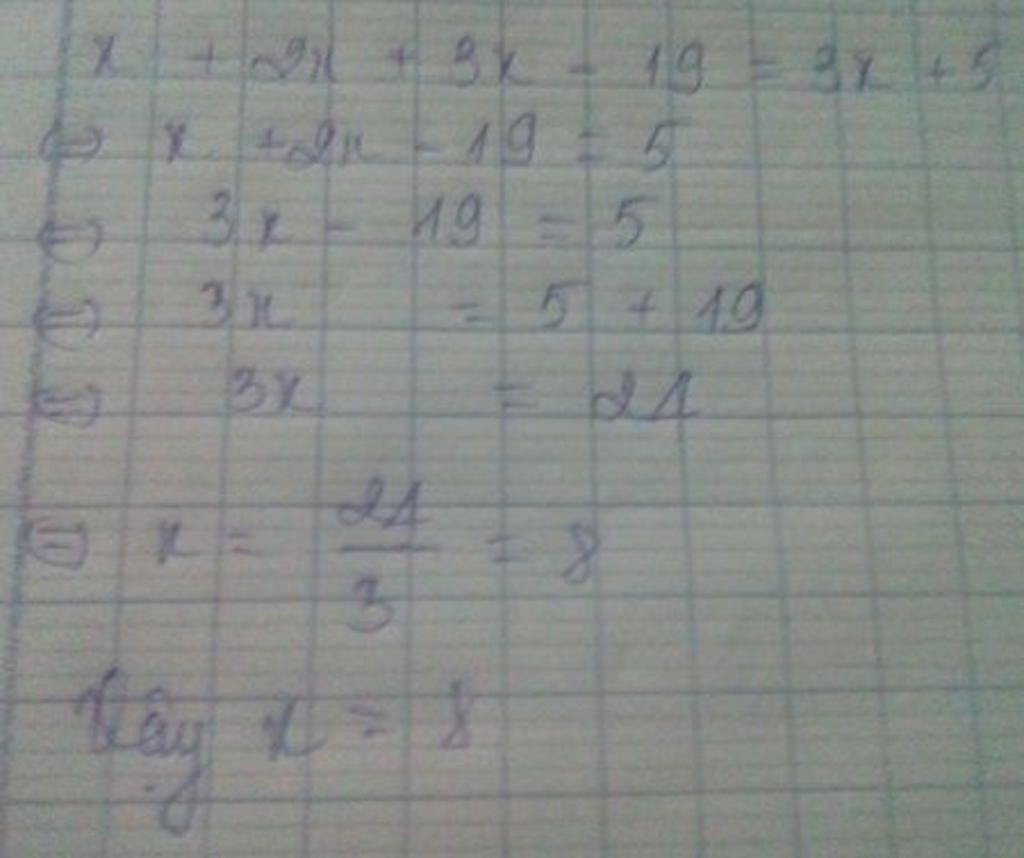 x + 2x + 3x - 19 = 3x + 5
⇔ x + 2x - 19 = 5
⇔ 3x - 19 = 5
⇔ 3x = 5 + 19
⇔ 3x = 24
⇔ x = 24/3 = 8
Vậy x = 8